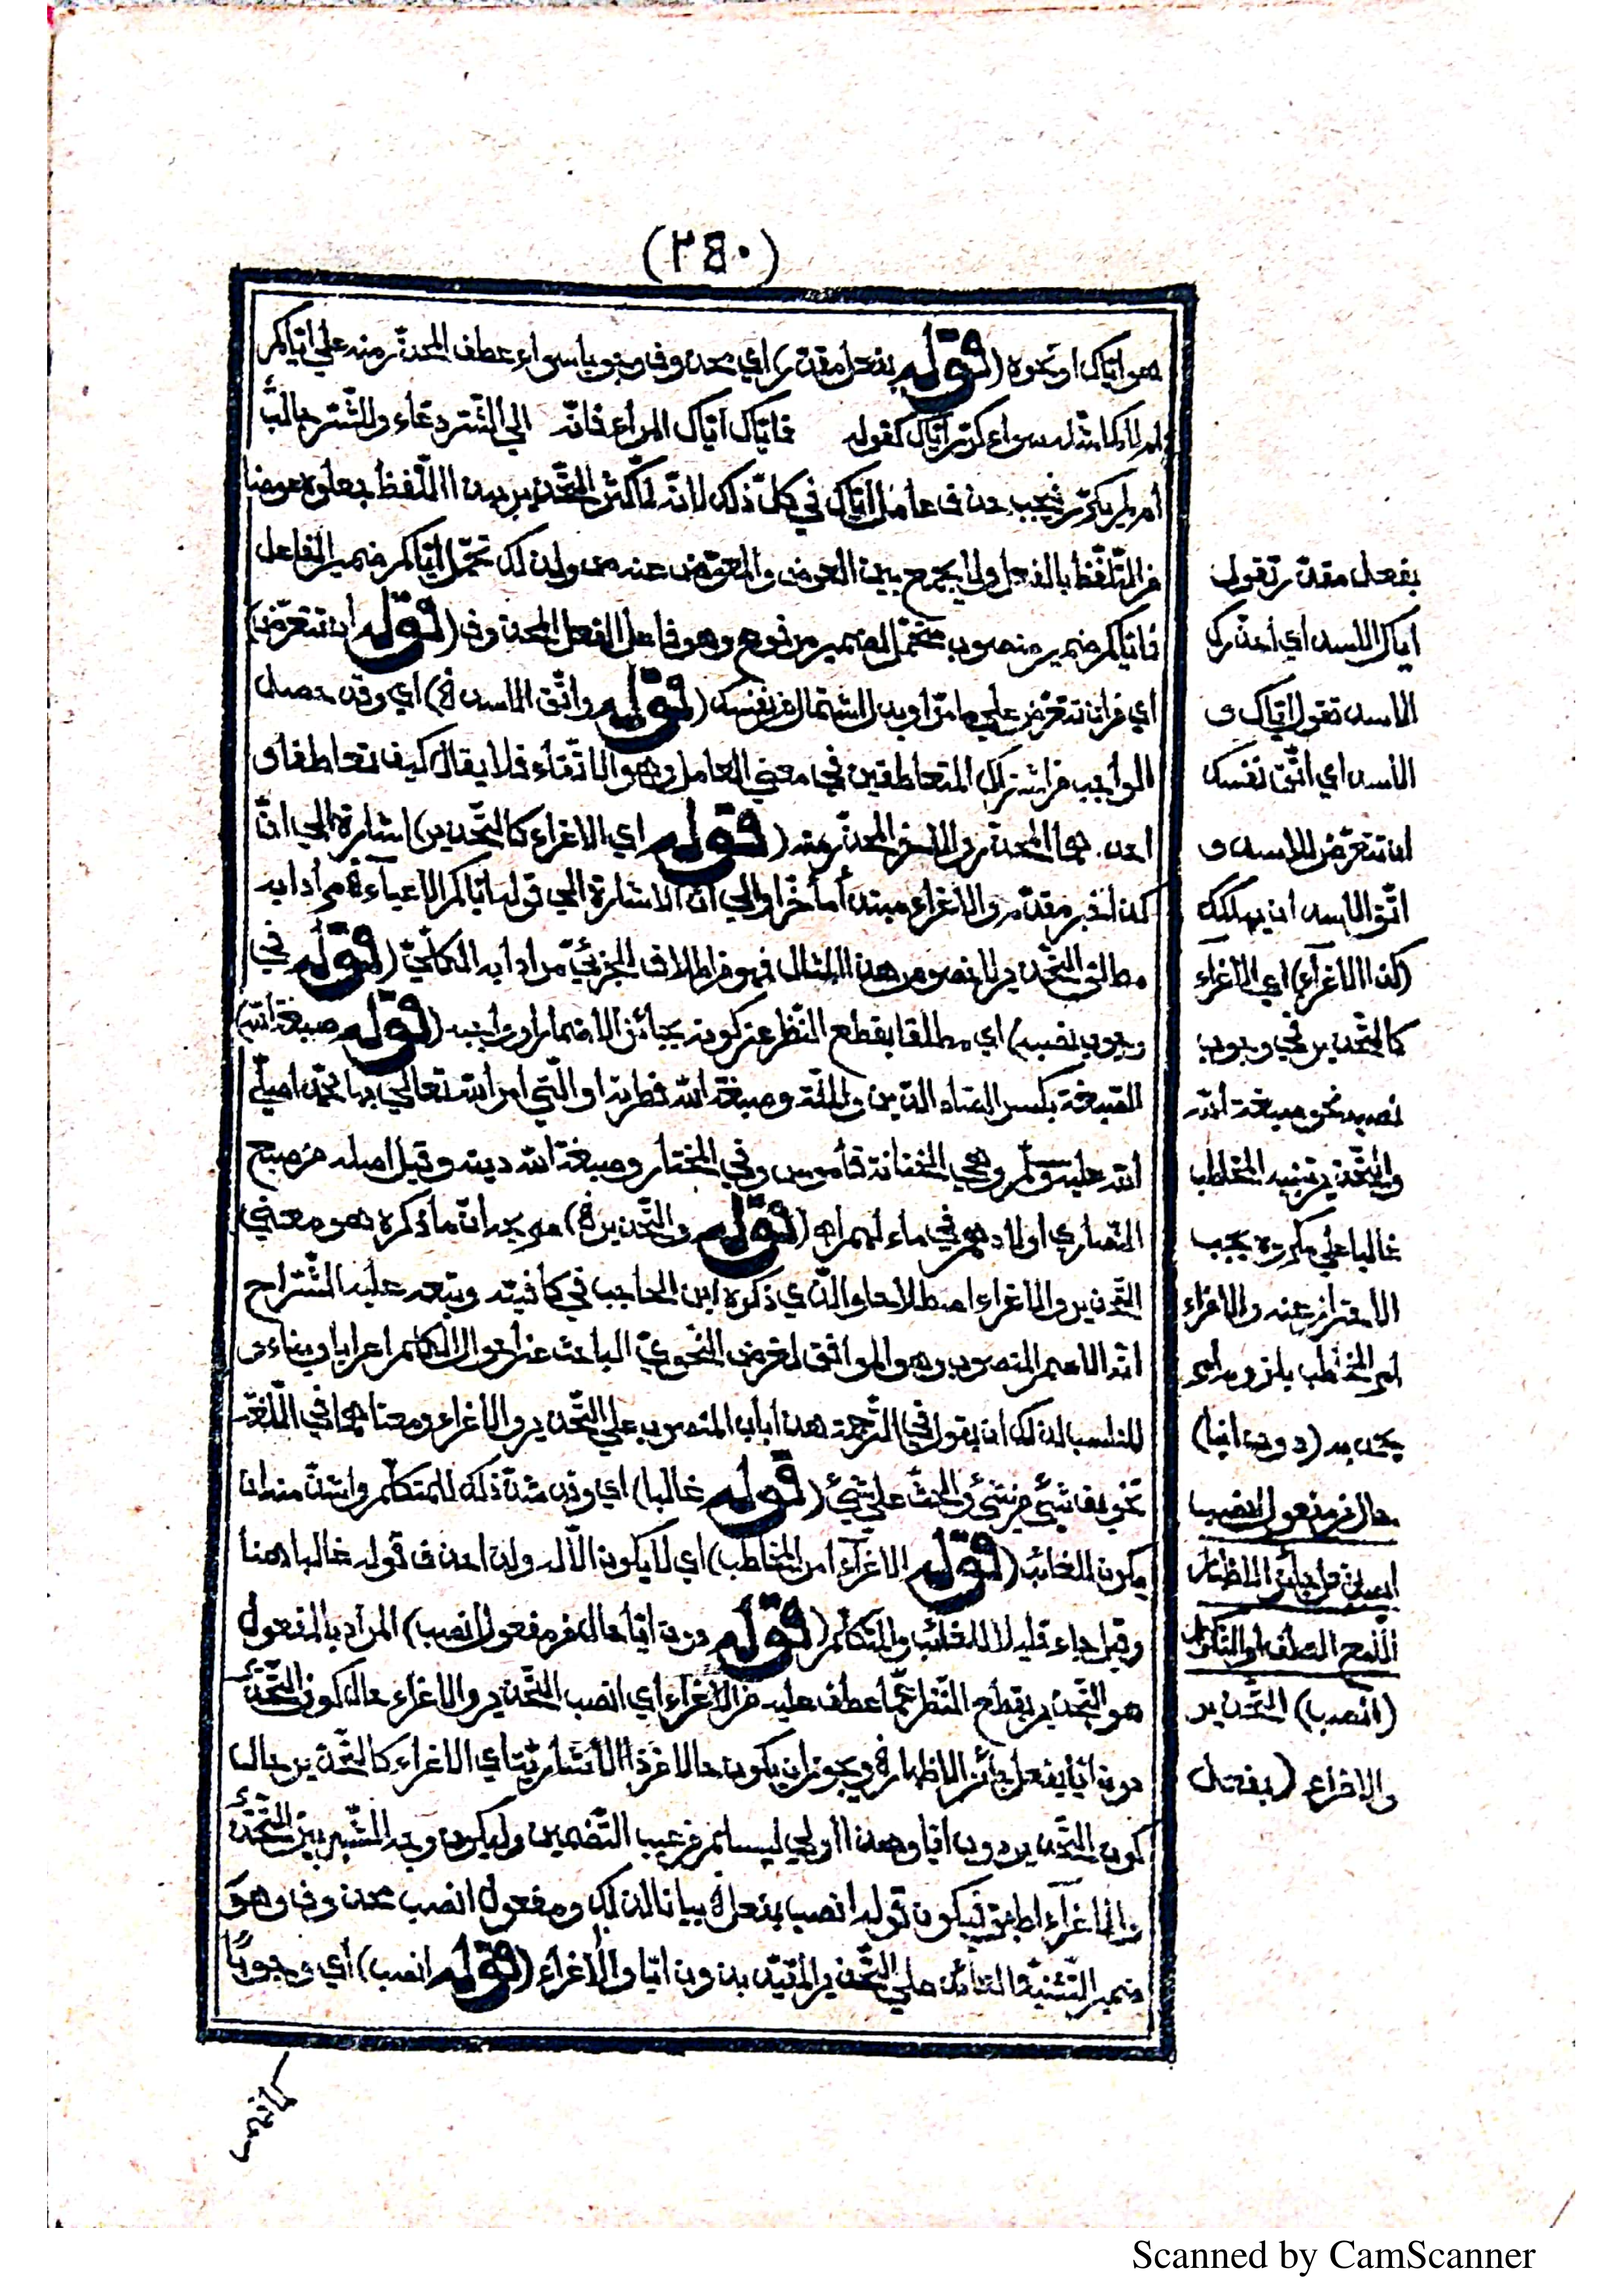 (٢٤٠)
هو اياك او نحوه (قوله بفعل مقدّر) اي محذوف وجوبا سواء عطف المحذّر منه علي ايّاكم
ام لا كما مثّله سواء كرّر ايّاك كقوله فايّاك ايّاك المراء فانّه الي الشّرّ دعّاء وللشّرّ جالب
أم لم يكرّر فيجب حذف عامل ايّاك في كلّ ذلك لانّه لمّا كثر التّحذير بهذا اللّفظ جعلوه عوضا
من التّلفّظ بالفعل ولا يجمع بين العوض والمعوّض عنه ولذلك تحمّل ايّاكم ضمير الفاعل
فاياكم ضمير منصوب متحمّل لضمير مرفوع وهو فاعل الفعل المحذوف (قوله ان تتعرّض)
اي من ان تتعرّض علي ما مرّ او بدل اشتمال من نفسك (قوله واتّق الاسد الخ) اي وقد حصل
الواجب من اشتراك المتعاطفين في معني العامل وهو الاتّقاء فلا يقال كيف تعاطفا و
احدهما المحذّر والاخر المحذّر منه (قوله اي الاغراء كالتّحذير) اشارة الي انّ
كذا خبر مقدّم والاغراء مبتدأ مأخّر والي انّ الاشارة الي قوله ايّاكم الاعياء الخ مرادا به
مطلق التّحذير لا خصوص هذا المثال فهو من اطلاق الجزئيّ مرادا به الكلّيّ (قوله في
وجوب نصبه) اي مطلقا بقطع النّظر عن كونه بجائز الاضمار او واجبه (قوله صبغة الله)
الصبغة بكسر الصّاد الدّين والملّة وصبغة الله فطرته او الّتي امر الله تعالي بها محمّدا صلّي
الله عليه وسلّم وهي الختانة قاموس وفي المختار وصبغة الله دينه وقيل اصله من صبح
النّصاري اولادهم في ماء لهم اه (قوله والتّحذير الخ) هو يجد انّ ما ذكره هو معني
التّحذير والاغراء اصطلاحا والّذي ذكره ابن الحاجب في كافيته وتبعه عليه الشّراح
انّه الاسم المنصوب وهو الموافق لغرض النّحويّ الباحث عن احوال الكلم اعرابا وبناء و
المناسب لذلك ان يقول في التّرجمة هذا باب المنصوب علي التّحذير والاغراء ومعناهما في اللّغة
تخويف شيئ من شيئ والحثّ علي شيئ (قوله غالبا) اي وقد شذّ ذلك للمتكلّم واشذّ منه ان
يكون للغائب (قوله الاغراء امر المخاطب) اي لا يكون الّا له ولذا حذف قوله غالبا هنا
وقيل جاء قليلا للغائب والمتكلّم (قوله دون ايّا حال من مفعول انصب) المراد بالمفعول
هو التّحذير بقطع النّظر عمّا عطف عليه من الاغراء اي انصب التّحذير والاغراء حال كون التّحذير
دون ايّا بفعل جائز الاظهار الخ ويجوز ان يكون حالا من ذا الاشاريّة اي الاغراء كالتّحذير حال
كون التّحذير دون ايّا وهذا اولي ليسلم من عيب التّضمين وليكون وجه الشّبه بين التّحذير
والاغراء اطهر فيكون قوله انصب بفعل الخ بيانا لذلك ومفعول انصب محذوف وهو
ضمير التّثنية العائد علي التّحذير المقيّد بدون ايّا والاغراء (قوله انصب) أي وجوبًا
بفعل مقدّر تقول
اياك الاسد اي أحذّرك
الاسد تقول ايّاك و
الاسد اي اتّق نفسك
ان تتعرّض للاسد و
اتّق الاسد ان يهلكك
(كذا الاغراء) اي الاغراء
كالتّحذير في وجوب
نصبه نحو صبغة الله
والتّحذير تنبيه المخاطب
غالبا علي مكروه يجب
الاحتراز عنه والاغراء
امر المخاطب بلزوم امر
يحمد به (دون ايّا)
حال من مفعول انصب
اي مع العطف او التّكرار
(انصب) التّحذير
والاغراء (بفعل